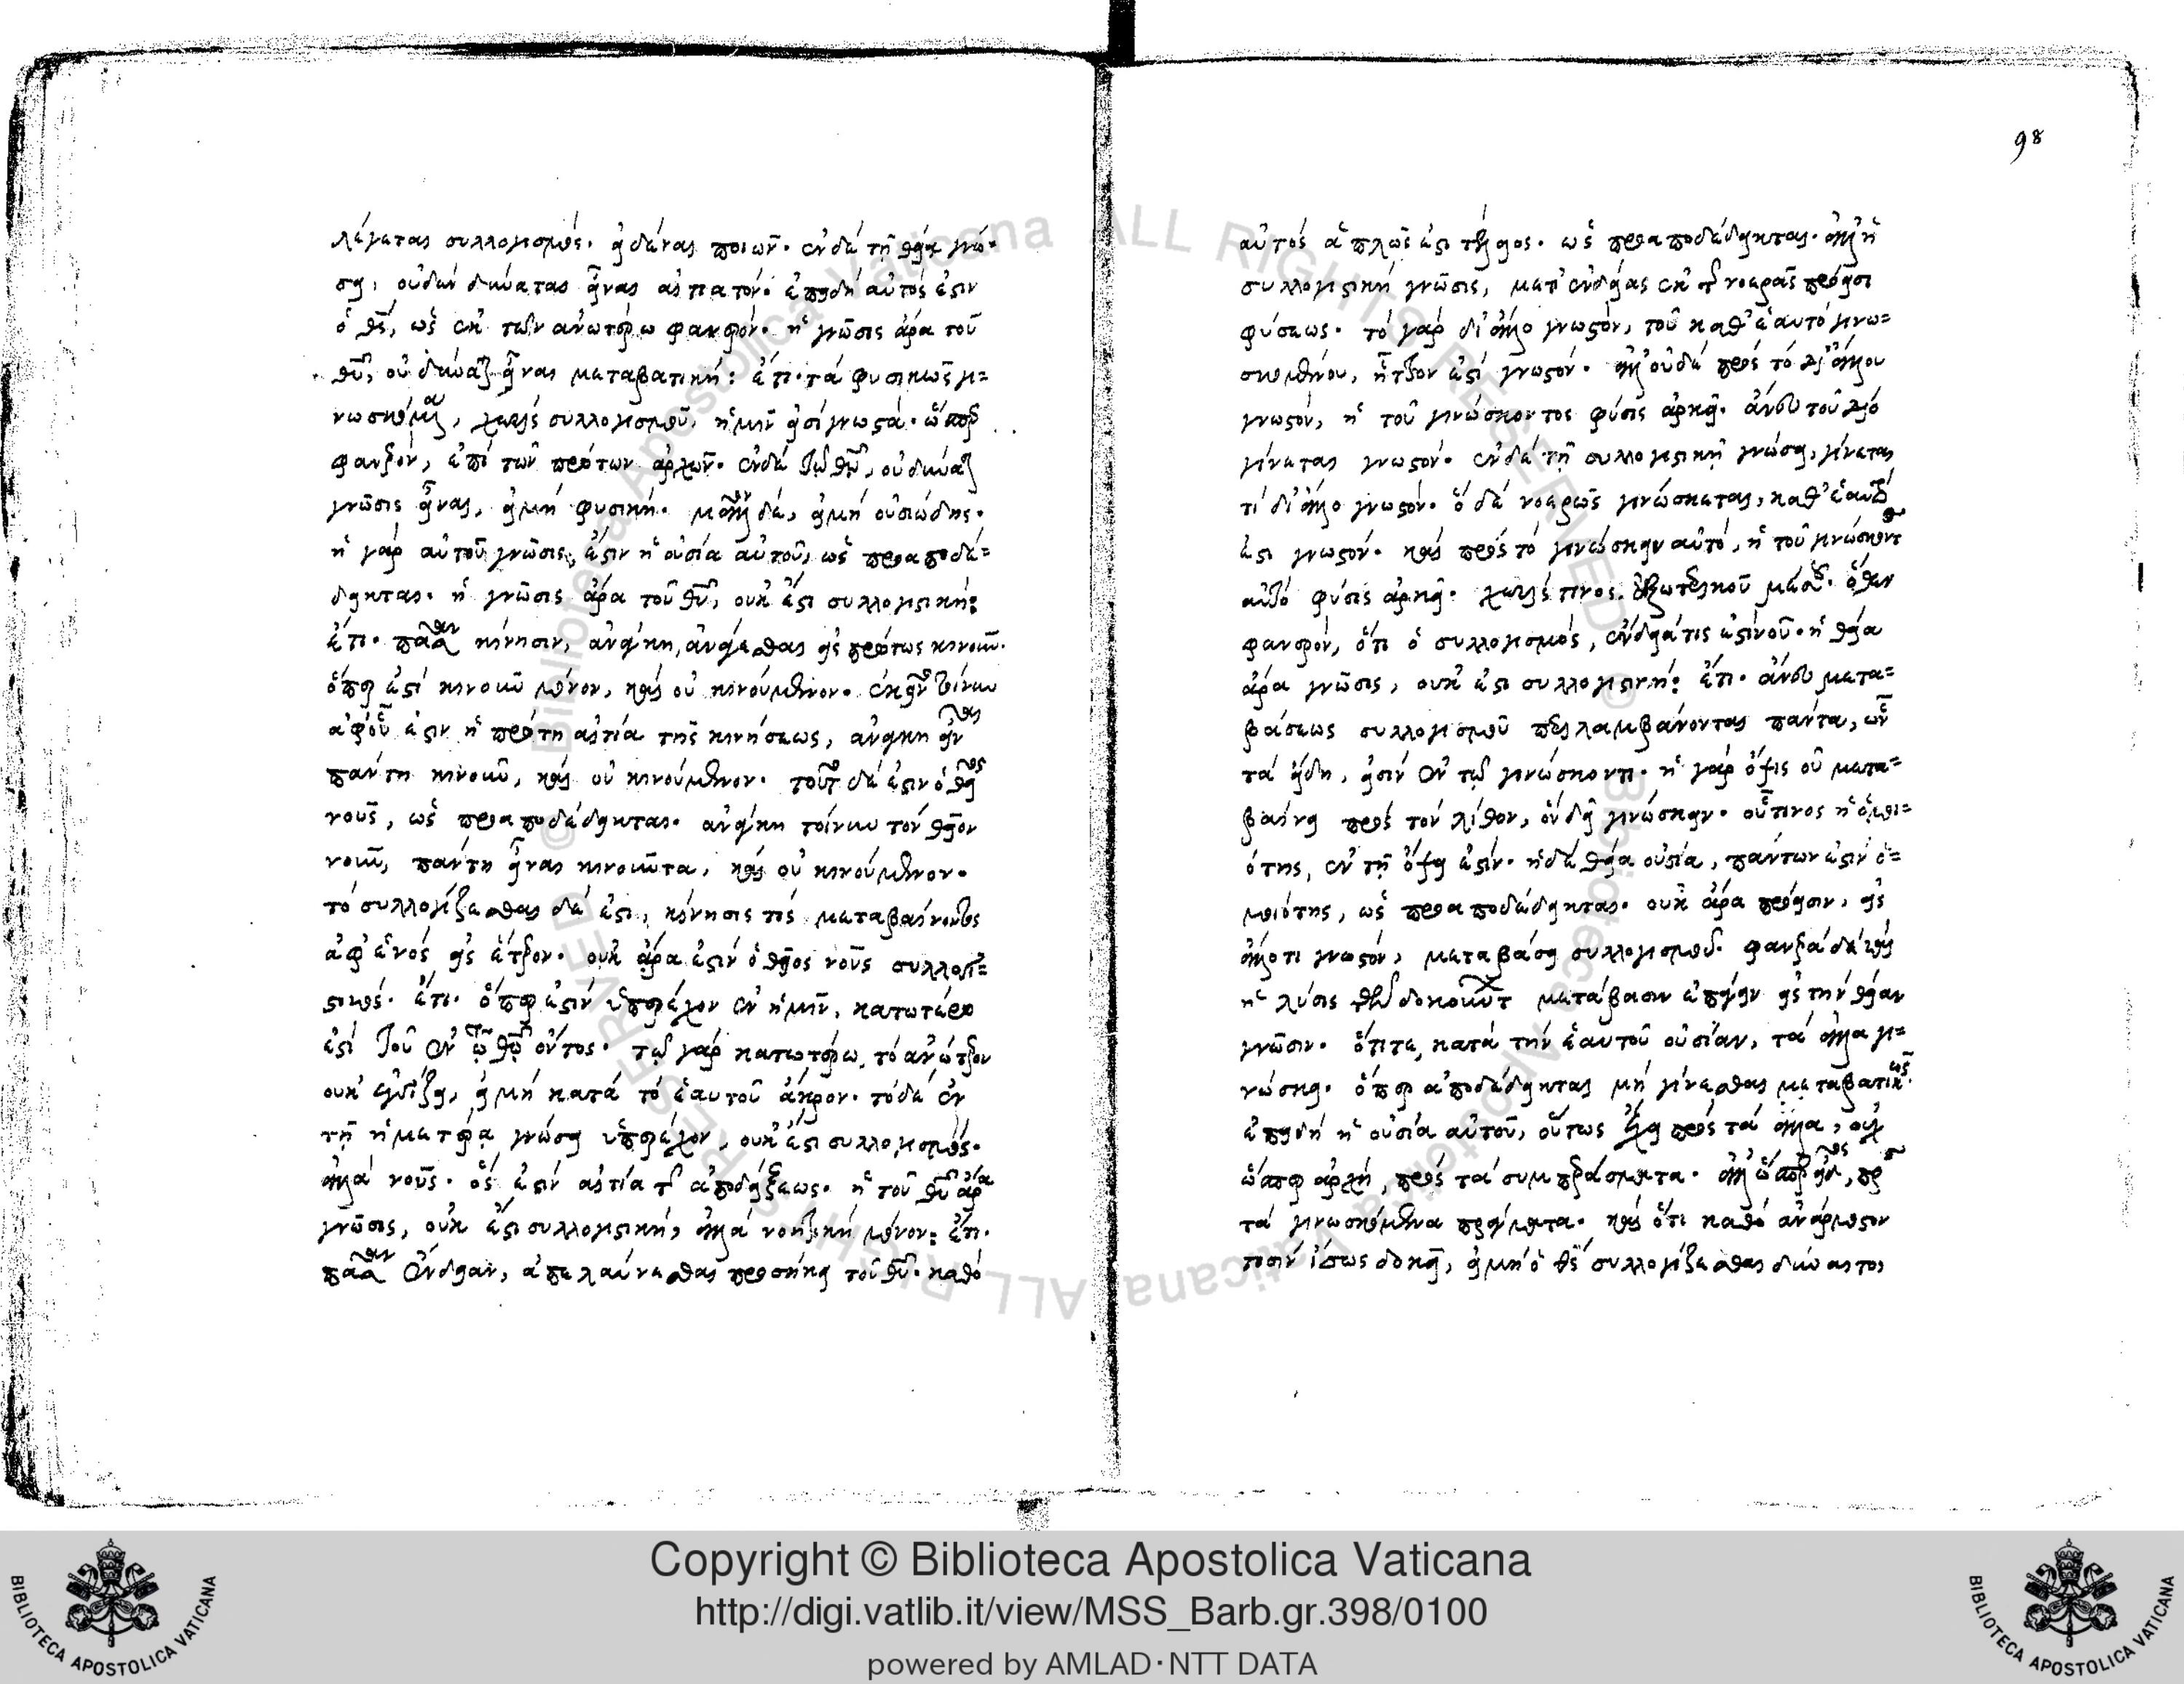 λέγεται συλλογισμός. εἰδέναι ποιῶν. ἐν δὲ τῇ θείᾳ γνώ=
σει, οὐδὲν δύναται εἶναι αἰτιατόν. ἐπειδὴ αὐτός ἐστιν
ὁ θς, ὡς ἐκ τῶν ἀνωτέρω φανερόν. ἡ γνῶσις ἄρα τοῦ
θυ, οὐ δύναται εἶναι μεταβατική: ἔτι. τὰ φυσικῶς γι=
νωσκόμενα, χωρὶς συλλογισμοῦ, ἡμῖν εἰσὶ γνωστά. ὥσπερ
φανερόν, ἐπὶ τῶν πρώτων ἀρχῶν. ἐν δὲ τῷ θω, οὐ δύναται
γνῶσις εἶναι, εἰ μὴ φυσική. μᾶλλον δὲ, εἰ μὴ οὐσιώδης.
ἡ γὰρ αὐτοῦ γνῶσις, ἐστιν ἡ οὐσία αὐτοῦ, ὡς προαποδέ=
δεικται. ἡ γνῶσις ἄρα τοῦ θυ, οὐκ ἔστι συλλογιστική:
ἔτι. πᾶσαν κίνησιν, ἀνάγκη, ἀνάγεσθαι εἰς πρώτως κινοῦν.
ὅπερ ἐστὶ κινοῦν μόνον, καὶ οὐ κινούμενον. ἐκεῖνο τοίνυν
ἀφ' οὗ ἐστιν ἡ πρώτη αἰτία τῆς κινήσεως, ἀνάγκη εἶναι
πάντη κινοῦν, καὶ οὐ κινούμενον. τοῦτο δέ ἐστιν ὁ θεῖος
νοῦς, ὡς προαποδέδεικται. ἀνάγκη τοίνυν τὸν θεῖον
νοῦν, πάντη εἶναι κινοῦντα, καὶ οὐ κινούμενον.
τὸ συλλογίζεσθαι δέ ἐστι, κίνησίς τις μεταβαίνοντος
ἀφ' ἑνὸς εἰς ἕτερον. οὐκ ἄρα ἐστὶν ὁ θεῖος νοῦς συλλογι=
στικός. ἔτι. ὅπερ ἐστὶν ὑπερέχον ἐν ἡμῖν, κατωτέρω
ἐστὶ τοῦ ἐν τῷ θῷ ὄντος. τῷ γὰρ κατωτέρω, τὸ ἀνώτερον
οὐκ ἐγγίζει, εἰ μὴ κατὰ τὸ ἑαυτοῦ ἄκρον. τὸ δὲ ἐν
τῇ ἡμετέρᾳ γνώσει ὑπερέχον, οὐκ ἔστι συλλογισμός.
ἀλλὰ νοῦς. ὅς ἐστιν αἰτία τῆς ἀποδείξεως. ἡ τοῦ θυ ἄρα
γνῶσις, οὐκ ἔστι συλλογιστική, ἀλλὰ νοητικὴ μόνον: ἔτι.
πᾶσαν ἔνδειαν, ἀπελαύνεσθαι προσήκει τοῦ θυ. καθὸ
98
αὐτὸς ἁπλῶς ἐστι τέλειος. ὡς προαποδέδεικται. ἀλλ' ἡ
συλλογιστικὴ γνῶσις, μετ' ἐνδείας ἐκ τῆς νοερᾶς πρόεισι
φύσεως. τὸ γὰρ δι' ἄλλο γνωστὸν, τοῦ καθ' ἑαυτὸ γινω=
σκομένου, ἧττόν ἐστι γνωστόν. ἀλλ' οὐδὲ πρὸς τὸ δι' ἄλλου
γνωστὸν, ἡ τοῦ γινώσκοντος φύσις ἀρκεῖ. ἄνευ τοῦ δι' ὃ
γίνεται γνωστόν. ἐν δὲ τῇ συλλογιστικῇ γνώσει, γίνεται
τί δι' ἄλλο γνωστόν. ὃ δὲ νοερῶς γινώσκεται, καθ' ἑαυτό
ἐστι γνωστόν. καὶ πρὸς τὸ γινώσκειν αὐτὸ, ἡ τοῦ γινώσκοντος
αὐτὸ φύσις ἀρκεῖ. χωρίς τινος ἐξωτερικοῦ μέσου. ὅθεν
φανερὸν, ὅτι ὁ συλλογισμός, ἔνδειά τις ἐστὶ νοῦ. ἡ θεία
ἄρα γνῶσις, οὐκ ἔστι συλλογιστική: ἔτι. ἄνευ μετα=
βάσεως συλλογισμοῦ περιλαμβάνονται πάντα, ὧν
τὰ εἴδη, εἰσὶν ἐν τῷ γινώσκοντι. ἡ γὰρ ὄψις οὐ μετα=
βαίνει πρὸς τὸν λίθον, ὃν δεῖ γινώσκειν. οὗτινος ἡ ὁμοι=
ότης, ἐν τῇ ὄψει ἐστίν. ἡ δὲ θεία οὐσία, πάντων ἐστὶν ὁ=
μοιότης, ὡς προαποδέδεικται. οὐκ ἄρα πρόεισιν, εἰς
ἄλλο τι γνωστόν, μεταβάσει συλλογισμοῦ. φανερὰ δὲ καὶ
ἡ λύσις τῶν δοκούντων μετάβασιν ἐπάγειν εἰς τὴν θείαν
γνῶσιν. ὅτι τε κατὰ τὴν ἑαυτοῦ οὐσίαν, τὰ ἄλλα γι=
νώσκει. ὅπερ ἀποδέδεικται μὴ γίνεσθαι μεταβατικῶς.
ἐπειδὴ ἡ οὐσία αὐτοῦ, οὕτως ἔχει πρὸς τὰ ἄλλα, οὐχ
ὥσπερ ἀρχὴ, πρὸς τὰ συμπεράσματα. ἀλλ' ὥσπερ εἶδος, πρὸς
τὰ γινωσκόμενα πράγματα. καὶ ὅτι καθὸ ἀνάρμοστον
τισὶν ἴσως δοκεῖ, εἰ μὴ ὁ θς συλλογίζεσθαι δύναιτο,
Copyright © Biblioteca Apostolica Vaticana
http://digi.vatlib.it/view/MSS_Barb.gr.398/0100
powered by AMLAD·NTT DATA